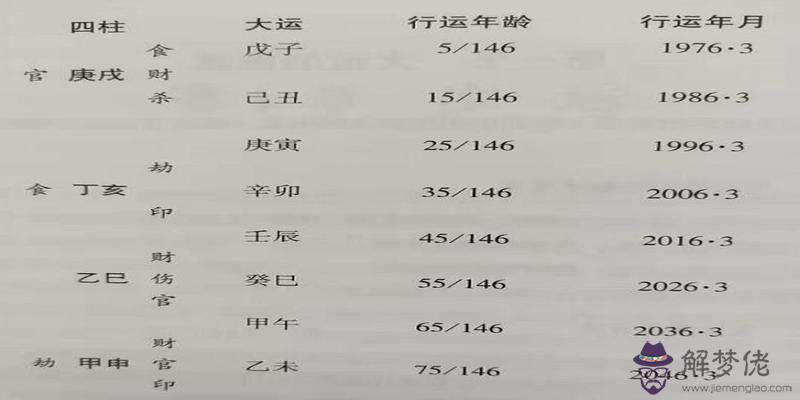 四柱 大运 行运年龄 行运年月
食 戊子 5/146 1976·3
官 庚戌 财
杀 己丑 15/146 1986·3
庚寅 25/146 1996·3
劫
食 丁亥 辛卯 35/146 2006·3
印
壬辰 45/146 2016·3
财
乙巳 伤 癸巳 55/146 2026·3
官
甲午 65/146 2036·3
财
劫 甲申 官 乙未 75/146 2046·3
印
解梦佬
www.jiemenglao.com